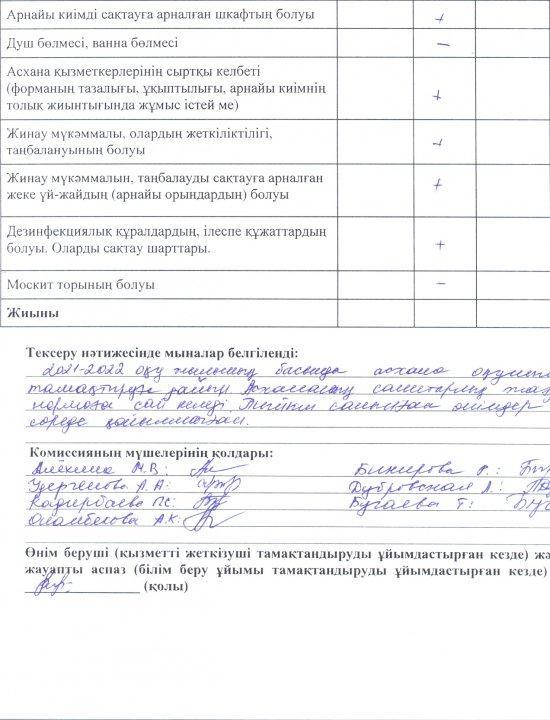 Арнайы киімді сақтауға арналған шкафтың болуы +
Душ бөлмесі, ванна бөлмесі –
Асхана қызметкерлерінің сыртқы келбеті
(форманың тазалығы, ұқыптылығы, арнайы киімнің +
толық жиынтығында жұмыс істей ме)
Жинау мүкәммалы, олардың жеткіліктілігі, +
таңбалануының болуы
Жинау мүкәммалын, таңбалауды сақтауға арналған +
жеке үй-жайдың (арнайы орындардың) болуы
Дезинфекциялық құралдардың, ілеспе құжаттардың
болуы. Оларды сақтау шарттары. +
Москит торының болуы –
Жиыны
Тексеру нәтижесінде мыналар белгіленді:
2021-2022 оқу жылының басында асхана
тамақтануға дайын Асхананың санитарлық
нормаға сай келеді
Комиссияның мүшелерінің қолдары:
Алёхина М.В: Бикирова Г.:
А.А: Дубровская Л.:
Кадирбаева Бугаева Т:
А.К:
Өнім беруші (қызметті жеткізуші тамақтандыруды ұйымдастырған кезде) жә
жауапты аспаз (білім беру ұйымы тамақтандыруды ұйымдастырған кезде)
(қолы)